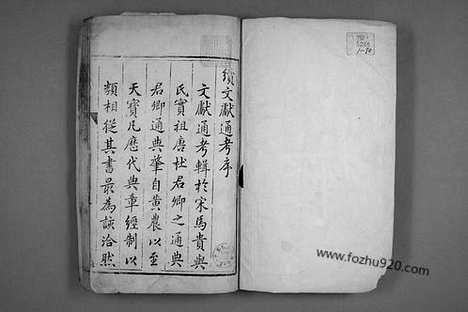 續文獻通考序
文獻通考輯於宋馬貴與
氏實祖唐杜君卿之通典
君卿通典肇自黃農以至
天寶凡歷代典章經制以
類相從其書最為該洽然
www.fozhu920.com